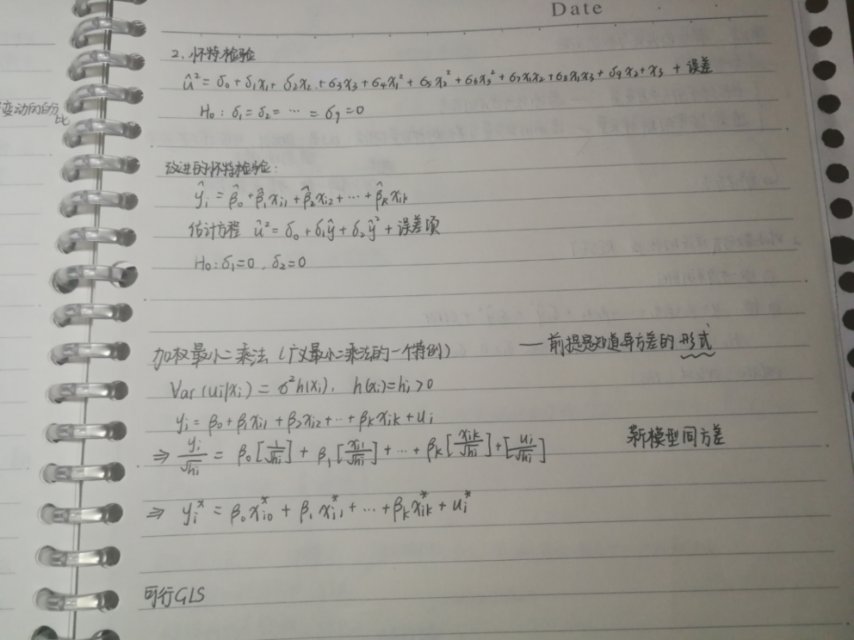 Date
2. 怀特检验
û² = δ₀ + δ₁x₁ + δ₂x₂ + δ₃x₃ + δ₄x₁² + δ₅x₂² + δ₆x₃² + δ₇x₁x₂ + δ₈x₁x₃ + δ₉x₂+x₃ + 误差
H₀: δ₁ = δ₂ = ⋯ = δ₉ = 0
变动的百分比
改进的怀特检验:
ŷᵢ = β̂₀ + β̂₁xᵢ₁ + β̂₂xᵢ₂ + ⋯ + β̂ₖxᵢₖ
估计方程 û² = δ₀ + δ₁ŷ + δ₂ŷ² + 误差项
H₀: δ₁=0, δ₂=0
加权最小二乘法(广义最小二乘法的一个特例) — 前提是知道异方差的形式
Var(uᵢ|xᵢ) = σ²h(xᵢ), h(xᵢ)=hᵢ>0
yᵢ = β₀ + β₁xᵢ₁ + β₂xᵢ₂ + ⋯ + βₖxᵢₖ + uᵢ
⇒ yᵢ/√hᵢ = β₀[1/√hᵢ] + β₁[xᵢ₁/√hᵢ] + ⋯ + βₖ[xᵢₖ/√hᵢ] + [uᵢ/√hᵢ] 新模型同方差
⇒ yᵢ* = β₀xᵢ₀* + β₁xᵢ₁* + ⋯ + βₖxᵢₖ* + uᵢ*
可行GLS